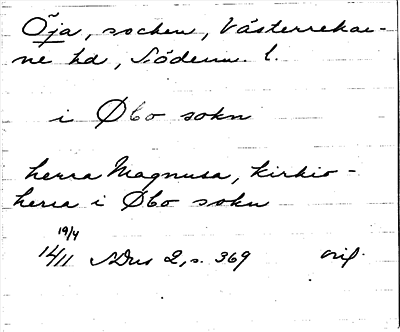 Öja, socken, Västerrekar-
ne hd, Söderm. l.
i Øbo sokn
herra Magnusa, kirkio-
herra i Øbo sokn
19/4
1411 SDns 2, s. 369 orig.